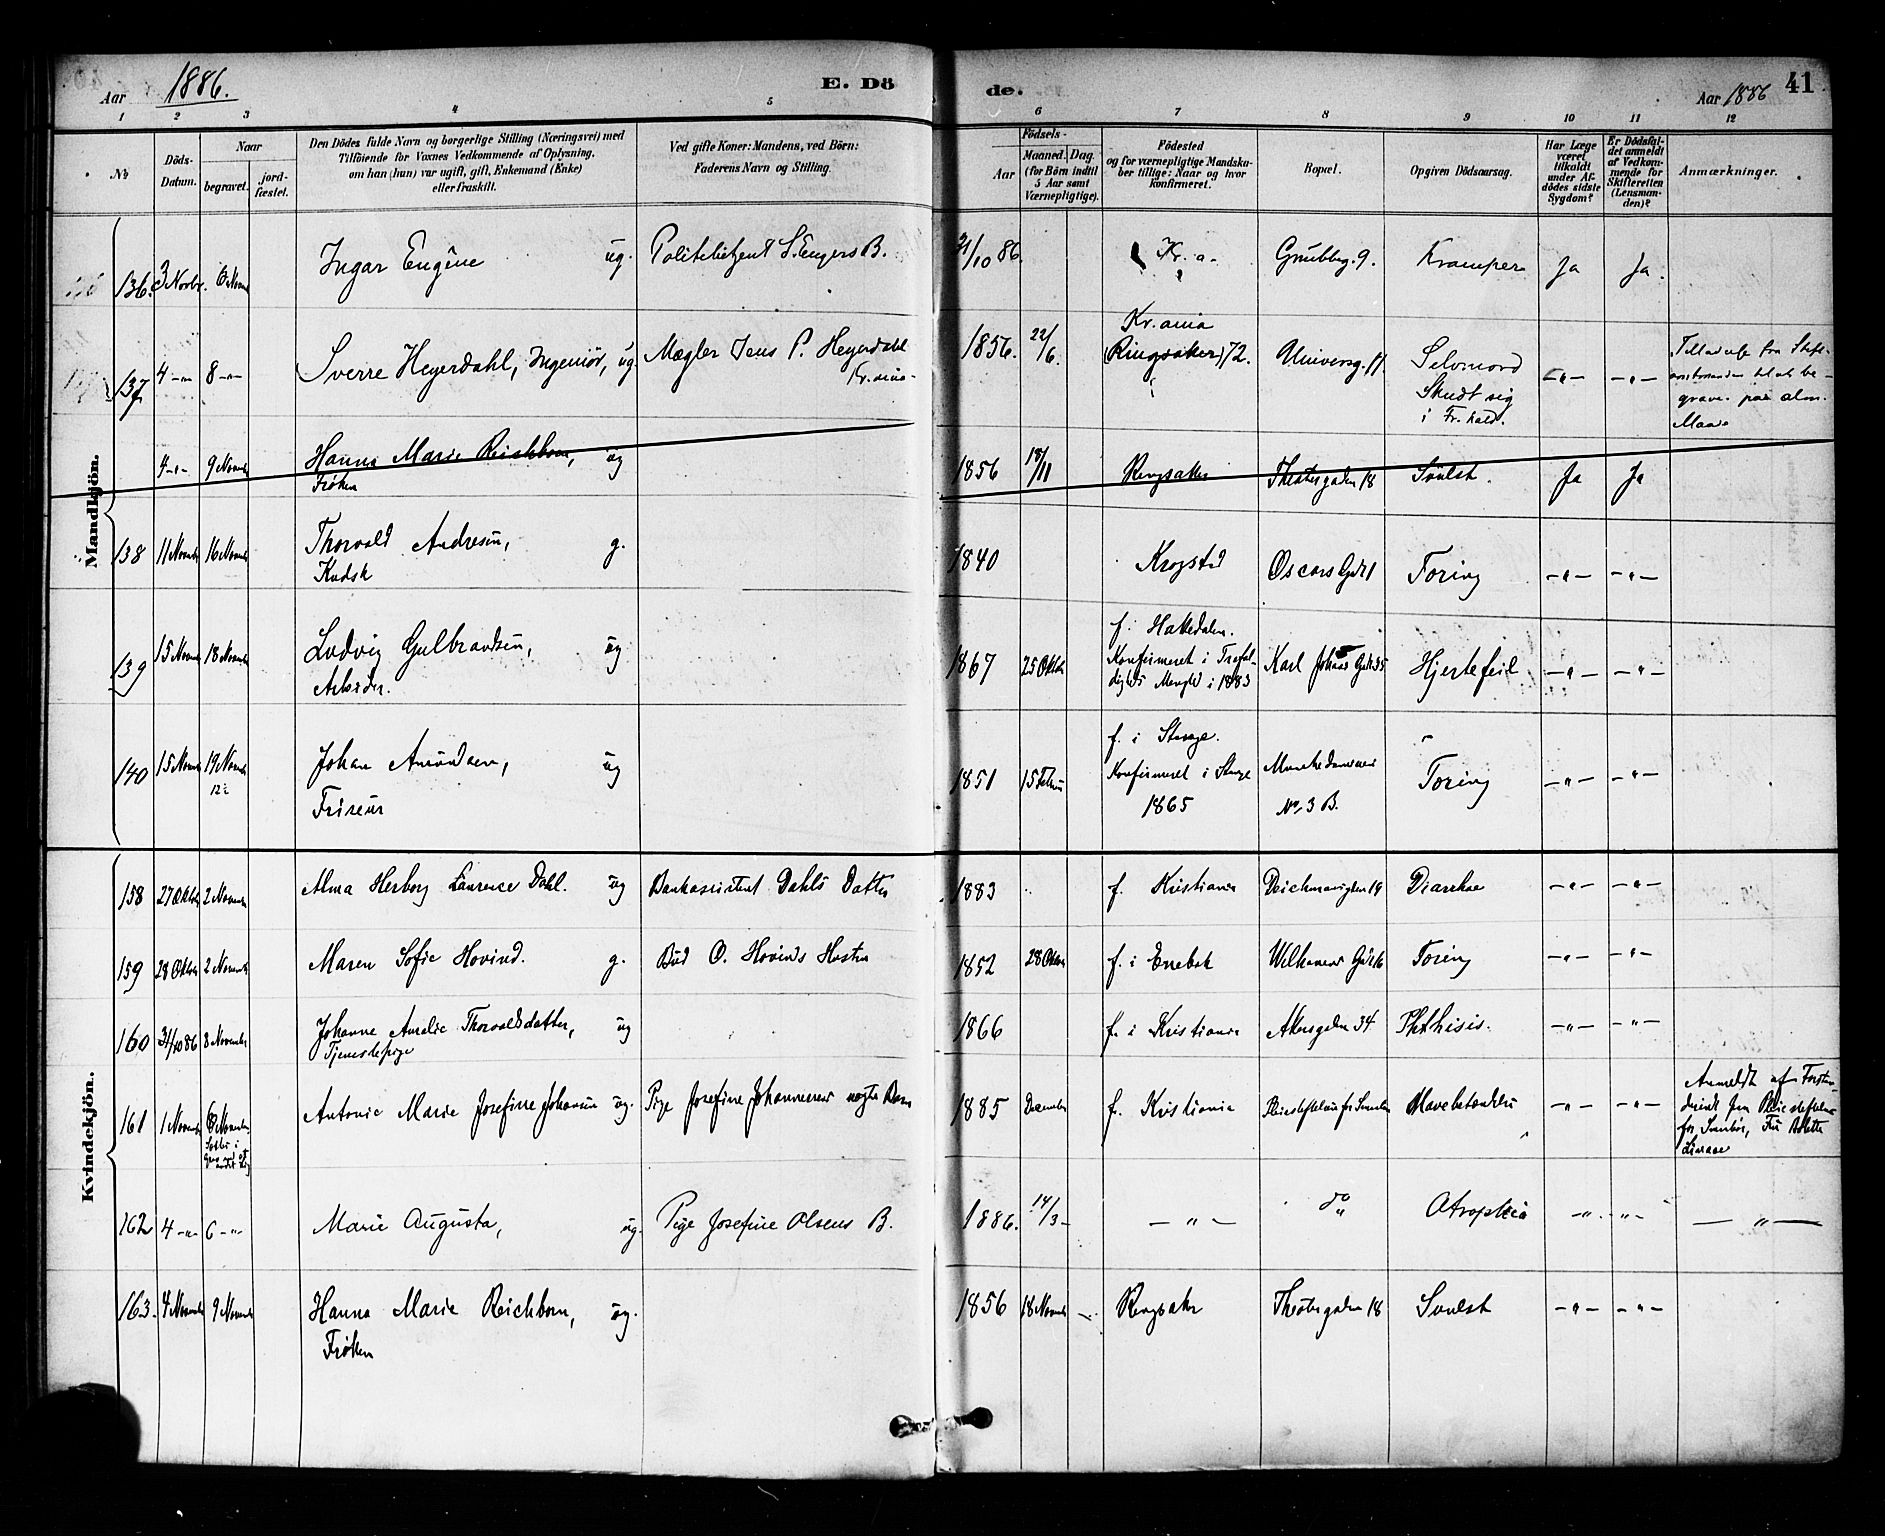 Aar 1886. E. Dö
de. Aar 1886 41
1 2 3 4 5 6 7 8 9 10 11 12
No
Döds-
Datum.
Naar
begravet.
jord-
fæstet.
Den Dödes fulde Navn og borgerlige Stilling (Næringsvei) med
Tilföiende for Voxnes Vedkommende af Oplysning,
om han (hun) var ugift, gift, Enkemand (Enke)
eller fraskilt.
Ved gifte Koner: Mandens, ved Börn:
Faderens Navn og Stilling.
Födsels-
Aar
Maaned. Dag.
(for Börn indtil
5 Aar samt
Værnepligtige).
Födested
og for værnepligtige Mandsku-
ber tillige: Naar og hvor
konfirmeret.
Bopæl.
Opgiven Dödsaarsag.
Har Læge
været
tilkaldt
under Af-
dödes sidste
Sygdom?
Er Dödsfal-
det anmeldt
af Vedkom-
mende for
Skifteretten
(Lensman-
den)?
Anmærkninger.
Mandkjön.
136. 3 Novbr. 6 Novbr Ingar Eugêne ug. Politibetjent S. Engers B. 21/10 86 Kr.a. Grubbeg. 9. Kramper Ja Ja.
137 4 -"- 8 -"- Sverre Heyerdahl, Ingeniör, ug. Mægler Jens P. Heyerdahl
Kr.ania
1856. 22/6. Kr.ania
(Ringsaker) 72. Universg. 11. Selvmord
Skudt sig
i Fr.hald.
-"- -"-
grave. paa alm.
Maade
4 -"- 9 Novembr Hanna Marie Reichborn, ug
Fröken
1856 18/11 Ringsaker Theatergaden 18 Svulst. Ja Ja
138 11 Novembr 16 Novembr Thorvald Andresen, g.
Kudsk
1840 Krogstad Oscars Gade 1 Tæring -"- -"-
139 15 Novembr 18 Novembr Ludvig Gulbrandsen, ug
Arbeider.
1867 25 Oktbr f. Hakedalen.
Konfirmeret i Trefol-
digheds Menighd i 1883
Karl Johans Gade 35 Hjertefeil -"- -"-
140 15 Novembr 19 Novembr
12½
Johan Amundsen, ug
Friseur
1851 15 Februar f. i Stange.
Konfirmeret i Stange
1865
Munkedamsvei
No 3 B.
Tæring -"- -"-
Kvindekjön.
158 27 Oktbr 2 Novembr Alma Herborg Laurence Dahl. ug Bankassistent Dahls Datter 1883 f. Kristiania Deichmansgaden 19 Diarrhoe -"- -"-
159 28 Oktbr 2 Novembr Maren Sofie Hovind. g. Bud O. Hovinds Hustru 1852 28 Oktbr f. i Enebak Welhavens Gade 16 Tæring -"- -"-
160 31/10 86 3 Novembr Johanne Amalie Thorvaldsdatter, ug
Tjenestepige
1866 f. i Kristiania Akersgaden 34 Phthisis. -"- -"-
161 1 Novembr 6 Novembr Antonie Marie Josefine Johansen ug. Pige Josefine Johannesens uægte Barn 1885 December f. Kristiania Pleiestiftelsen for Smaabørn Mavebetændelse -"- -"- Anmeldt af Forstan-
derinde fra Pleiestiftelsen
for Smaabørn,
162 4 -"- 6 -"- Marie Augusta, ug. Pige Josefine Olsens B. 1886. 14/3 - -"- do Atrophia -"- -"- -"-
163. 4 Novembr 9 Novembr Hanna Marie Reichborn, ug.
Fröken
1856 18 Novembr Ringsaker Theatergaden 18 Svulst -"- -"-